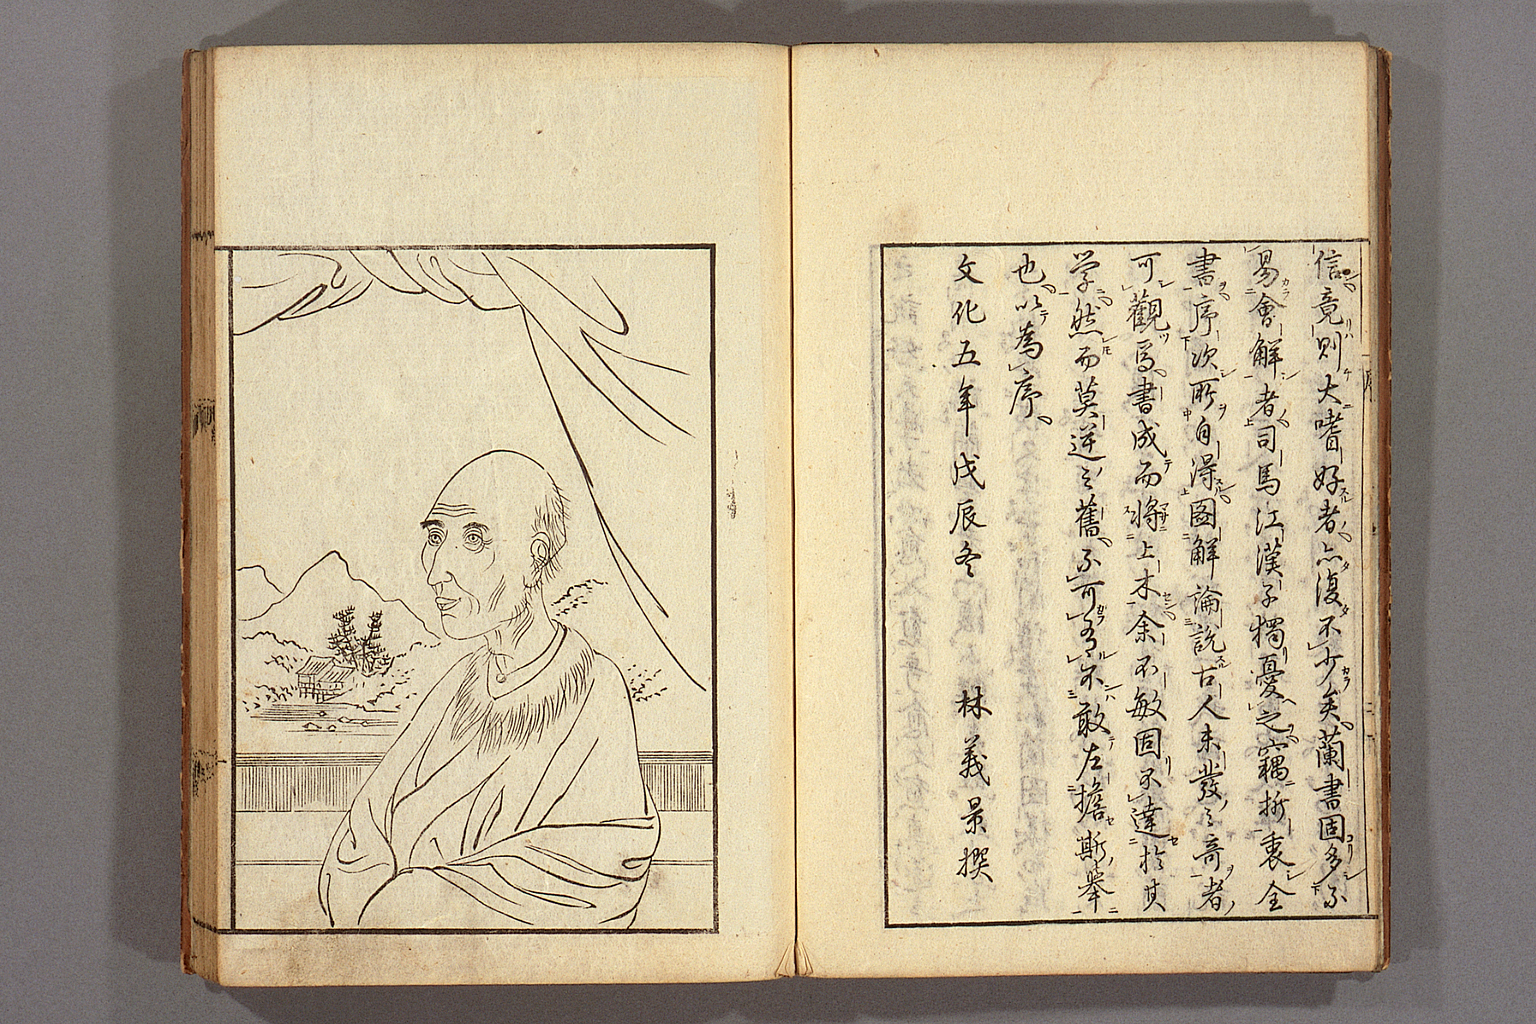 信竟則大嗜好者亦復不少矣蘭書固多不
易會解者司馬江漢子獨憂之竊折衷全
書序次所自得図解論説古人未發之奇者
可觀焉書成而將上木余不敏固不達於其
学然而莫逆之舊不可言不敢左擔斯挙
也以為序
文化五年戊辰冬
林義景撰
序